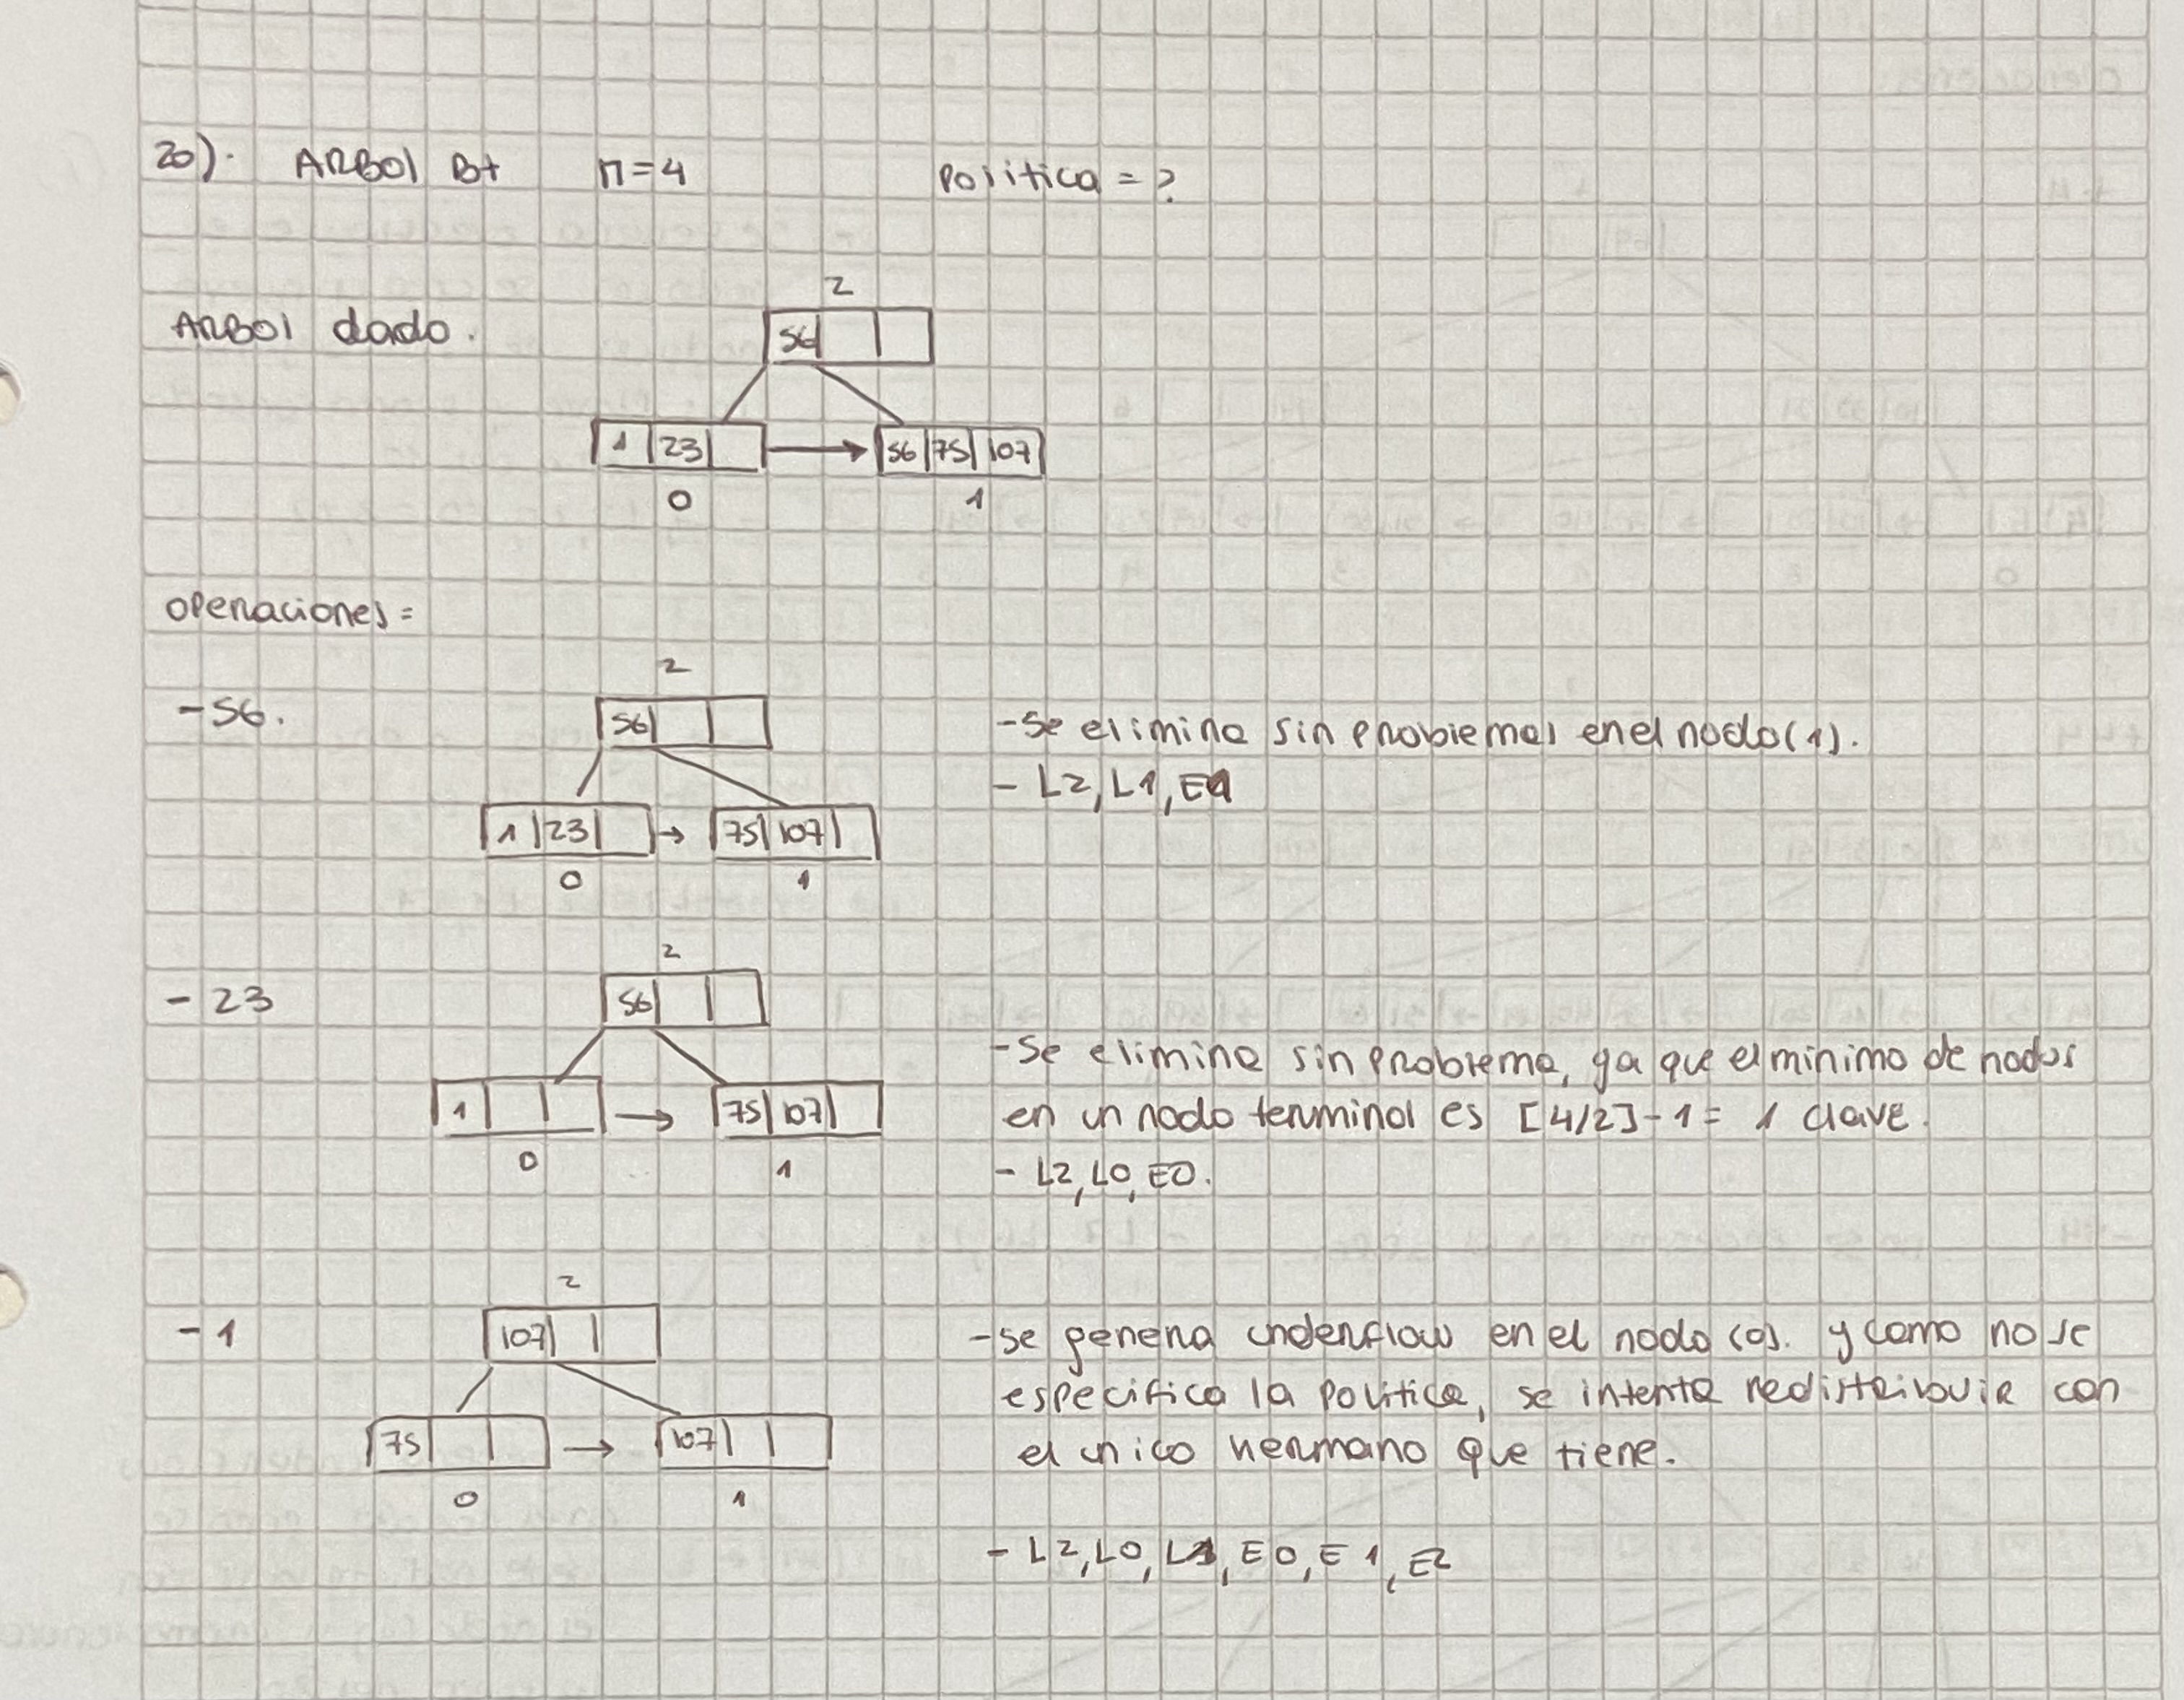 20). ARBOl B+ M=4 Politica = ?
2
ARBOl dado. 56
1 23 56 75 107
0 1
operaciones=
2
-56. 56 -Se elimina sin problemas en el nodo(1).
- L2, L1, E1
1 23 75 107
0 1
2
- 23 56
-Se elimina sin problema, ya que el minimo de nodos
1 75 107 en un nodo terminal es [4/2]-1= 1 clave.
0 1 - L2, L0, E0.
2
-1 107 -se genera underflow en el nodo (0). y como no se
especifica la politica, se intenta redistribuir con
75 107 el unico hermano que tiene.
0 1
- L2, L0, L1, E0, E1, E2